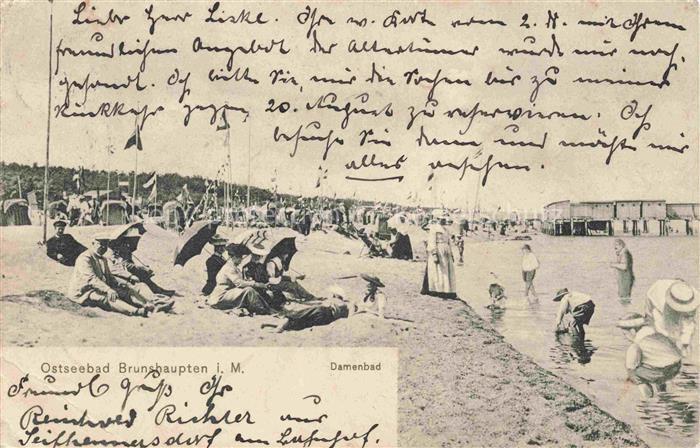 Liebe Herr Liske. Ihre w. Karte vom 2. d. mit Ihrem
freundlichen Angebot der Altertümer wurde mir nach-
gesandt. Ich bitte Sie, mir die Sachen bis zu meiner
Rückkehr gegen 20. August zu reservieren. Ich
besuche Sie dann und möchte mir
alles ansehen.
Ostseebad Brunshaupten i. M.
Damenbad
Freundl Gruß Ihr
Reinhold Richter aus
Seifhennersdorf am Bahnhof.